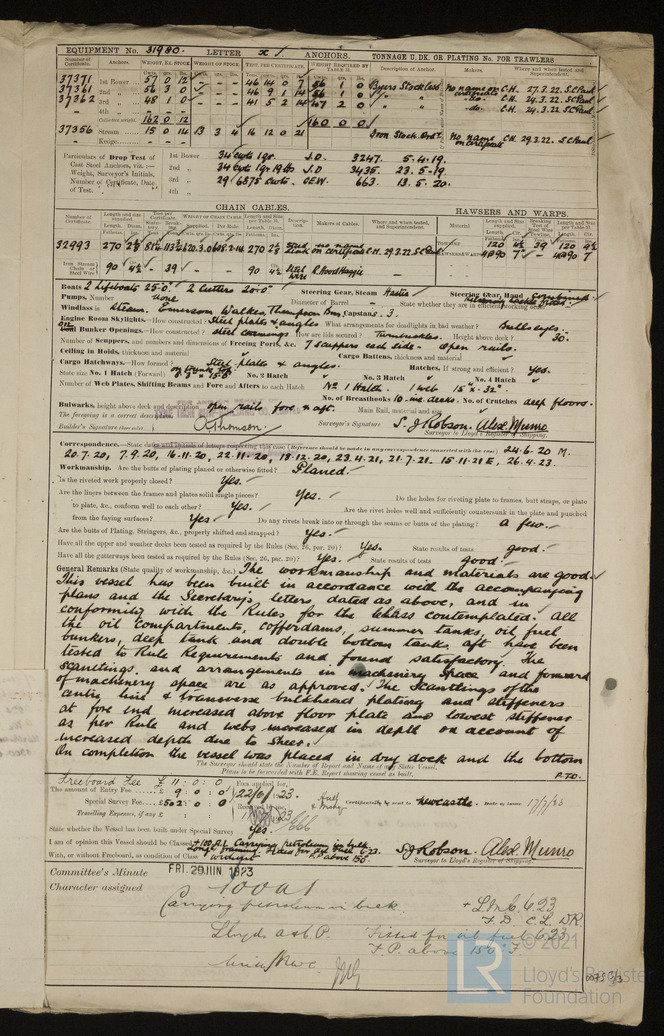 EQUIPMENT No. 31980. LETTER x/ ANCHORS. TONNAGE U. DK. OR PLATING No. FOR TRAWLERS.
Number of Certificate. Anchors. WEIGHT, EX. STOCK WEIGHT OF STOCK. TEST, PER CERTIFICATE. WEIGHT REQUIRED BY TABLE 31. Description of Anchor. Makers. Where and when tested and Superintendent.
37371 1st Bower 57 0 12 46 14 0 7 56 1 0 Byers Stockless no name on certificate C.H. 27.3.22 S C Paul
37361 2nd " 56 3 0 46 9 1 14 56 1 0 " " -do- C.H. 24.3.22 S C Paul
37362 3rd " 48 1 0 41 5 2 14 47 2 0 " " -do- C.H. 24.3.22 S C Paul
4th "
Collective weight 162 0 12 160 0 0
37356 Stream 15 0 14 3 3 4 16 12 0 21 Iron Stock Ord. No name on certificate C.H. 29.3.22. S C Paul
Kedge
Particulars of Drop Test of Cast Steel Anchors, viz.:— Weight, Surveyor's Initials, Number of Certificate, Date of Test.
1st Bower 34 cwts 1 qr. J.D. 3247. 5.4.19.
2nd " 34 cwt 1 qr 19 lbs J.D. 3435. 23.5.19.
3rd " 29.6875 cwts. O.E.W. 663. 13.5.20.
4th "
CHAIN CABLES. HAWSERS AND WARPS.
Number of Certificate. Length and size supplied. Test per Certificate. WEIGHT OF CHAIN CABLE. Length and Size per Table 31. Description. Makers of Cables. Where and when tested, and Superintendent. Material Length and Size supplied. Breaking Test of Steel Wire Length and Size per Table 31.
32993 270 2⅜ 270 2⅜ Stud Link no name on cert C.H. 29.3.22 S C Paul 120 4½ 39 120 4½
90 7 90 7
Iron Stream Chain or Steel Wire 90 4½ 39 90 4½ Steel wire R. Hood Haggie
Boats 2 lifeboats 25.0' 2 cutters 20.0' Steering Gear, Steam Hastie Steering Gear, Hand
Pumps, Number none Diameter of Barrel State whether they are in efficient working order
Windlass is steam. Emerson Walker, Thompson Bros Capstans. 3.
Engine Room Skylights.—How constructed? Steel plates & angles What arrangements for deadlights in bad weather? Bullseyes.
Oil Bunker Openings.—How constructed? Steel coamings How are lids secured? Turnbuckles. Height above deck? 30.
Number of Scuppers, and numbers and dimensions of Freeing Ports, &c. 7 scuppers each side - open rails.
Ceiling in Holds, thickness and material Cargo Battens, thickness and material
Cargo Hatchways.—How formed? Steel plates & angles. Hatches, If strong and efficient? Yes.
State size No. 1 Hatch (Forward) on trunk top No. 2 Hatch No. 3 Hatch No. 4 Hatch
Number of Web Plates, Shifting Beams and Fore and Afters to each Hatch No. 1 Hatch. 1 web 15" x .32"
No. of Breasthooks 10 inc decks. No. of Crutches deep floors.
Bulwarks, height above deck and description open rails fore n aft. Main Rail, material and size
The foregoing is a correct description
Builder's Signature A Thomson Surveyor's Signature S. J. Robson. Alex. Munro
Surveyor to Lloyd's Register of Shipping.
Correspondence.—State dates and initials of letters respecting this case (Reference should be made in any correspondence connected with the case) 24.6.20 M.
20.7.20, 7.9.20, 16.11.20, 22.11.20, 18.12.20, 23.4.21, 21.7.21, 15.11.21 E, 26.4.23.
Workmanship. Are the butts of plating planed or otherwise fitted? Planed.
Is the riveted work properly closed? Yes.
Are the liners between the frames and plates solid single pieces? Yes. Do the holes for riveting plate to frames, butt straps, or plate
to plate, &c., conform well to each other? Yes. Are the rivet holes well and sufficiently countersunk in the plate and punched
from the faying surfaces? Yes Do any rivets break into or through the seams or butts of the plating? a few.
Are the butts of Plating, Stringers, &c., properly shifted and strapped? Yes.
Have all the upper and weather decks been tested as required by the Rules (Sec. 26, par. 20)? Yes. State results of tests good.
Have all the gutterways been tested as required by the Rules (Sec. 26, par. 20)? Yes. State results of tests good.
General Remarks (State quality of workmanship, &c.) The workmanship and materials are good.
This vessel has been built in accordance with the accompanying
plans and the Secretary's letters dated as above, and in
conformity with the Rules for the Class contemplated. All
the oil compartments, cofferdams, summer tanks, oil fuel
bunkers, deep tank and double bottom tanks aft have been
tested to Rule Requirements and found satisfactory. The
scantlings, and arrangements in machinery space and forward
of machinery space are as approved. The Scantlings of the
centre line & transverse bulkhead plating and stiffeners
at fore end increased above floor plate and lowest stiffener
as per Rule and webs increased in depth on account of
increased depth due to Sheer.
On completion the vessel was placed in dry dock and the bottom
The Surveyor should state the Number of Report and Name of any Sister Vessel.
Please to be forwarded with F.E. Report showing vessel as built. P.T.O.
Freeboard Fee £ 11 : 0 : 0 Fees applied for,
The amount of Entry Fee £ 9 : 0 : 0 22/6/1923.
Special Survey Fee £502 : 0 : 0 Certificate to be sent to Newcastle. Date of issue 17/7/23
Travelling Expenses, if any £ : :
State whether the Vessel has been built under Special Survey Yes.
I am of opinion this Vessel should be Classed +100 A1. Carrying petroleum in bulk
With, or without Freeboard, as condition of Class without S. J. Robson. Alex. Munro
Surveyor to Lloyd's Register of Shipping.
Committee's Minute FRI. 29 JUN 1923
Character assigned +100A1
Carrying petroleum in bulk. + L.M.C. 6.23
F.D. C.L. D.R.
Lloyds A & C.P. Fitted for oil fuel 6.23
F.P. above 150° F.
LR © 2021
Lloyd's Register
Foundation